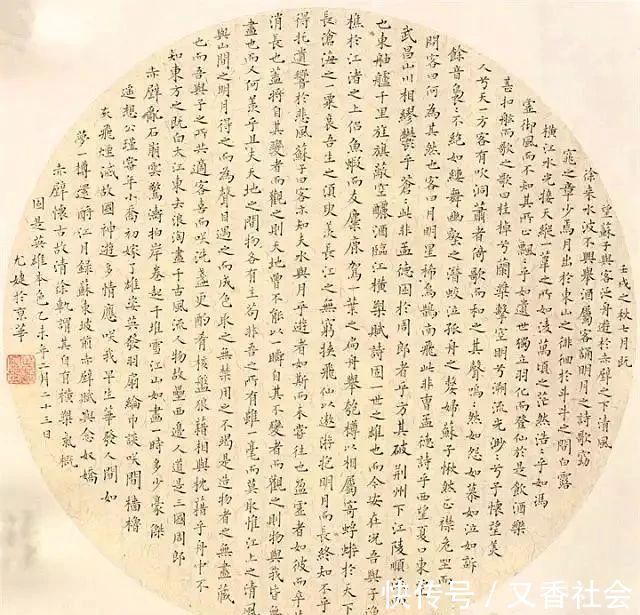 壬戌之秋七月既
望蘇子與客泛舟遊於赤壁之下清風
徐来水波不興舉酒屬客誦明月之詩歌窈
窕之章少焉月出於東山之上徘徊於斗牛之間白露
橫江水光接天縱一葦之所如凌萬頃之茫然浩浩乎如馮
虛御風而不知其所止飄飄乎如遺世獨立羽化而登仙於是飲酒樂
甚扣舷而歌之歌曰桂棹兮蘭槳擊空明兮溯流光渺渺兮予懷望美
人兮天一方客有吹洞簫者倚歌而和之其聲嗚然如怨如慕如泣如訴
餘音裊裊不絕如縷舞幽壑之潛蛟泣孤舟之嫠婦蘇子愀然正襟危坐而
問客曰何為其然也客曰月明星稀烏鵲南飛此非曹孟德詩乎西望夏口東
武昌山川相繆鬱乎蒼蒼此非孟德困於周郎者乎方其破荊州下江陵順
也東舳艫千里旌旗蔽空釃酒臨江橫槊賦詩固一世之雄也而今安在況吾與子漁
樵於江渚之上侶魚蝦而友麋鹿駕一葉之扁舟舉匏樽以相屬寄蜉蝣於天下
長滄海之一粟哀吾生之須臾羨長江之無窮挾飛仙以遨遊抱明月而長終知不乎
得托遺響於悲風蘇子曰客亦知夫水與月乎逝者如斯而未嘗往也盈虛者如彼而卒
消長也蓋將自其變者而觀之則天地曾不能以一瞬自其不變者而觀之則物與我皆無
盡也而又何羨乎且夫天地之間物各有主苟非吾之所有雖一毫而莫取惟江上之清風
與山間之明月得之而為聲目遇之而成色取之無禁用之不竭是造物者之無盡藏
也而吾與子之所共適客喜而咲洗盞更酌肴核盤狼籍相與枕藉乎舟中不
知東方之既白大江東去浪淘盡千古風流人物故壘西邊人道是三國周郎
赤壁亂石崩雲驚濤拍岸卷起千堆雪江山如畫一時多少豪傑
遥想公瑾當年小喬初嫁了雄姿英發羽扇綸巾談咲間檣櫓
灰飛煙滅故國神遊多情應咲我早生華發人間如
夢一樽還酹江月錄蘇東坡前赤壁賦與念奴嬌
赤壁懷古故清徐軌謂其自有橫槊氣概
固是英雄本色乙未年二月二十三日
尤婕於京華
快传号/又香社会